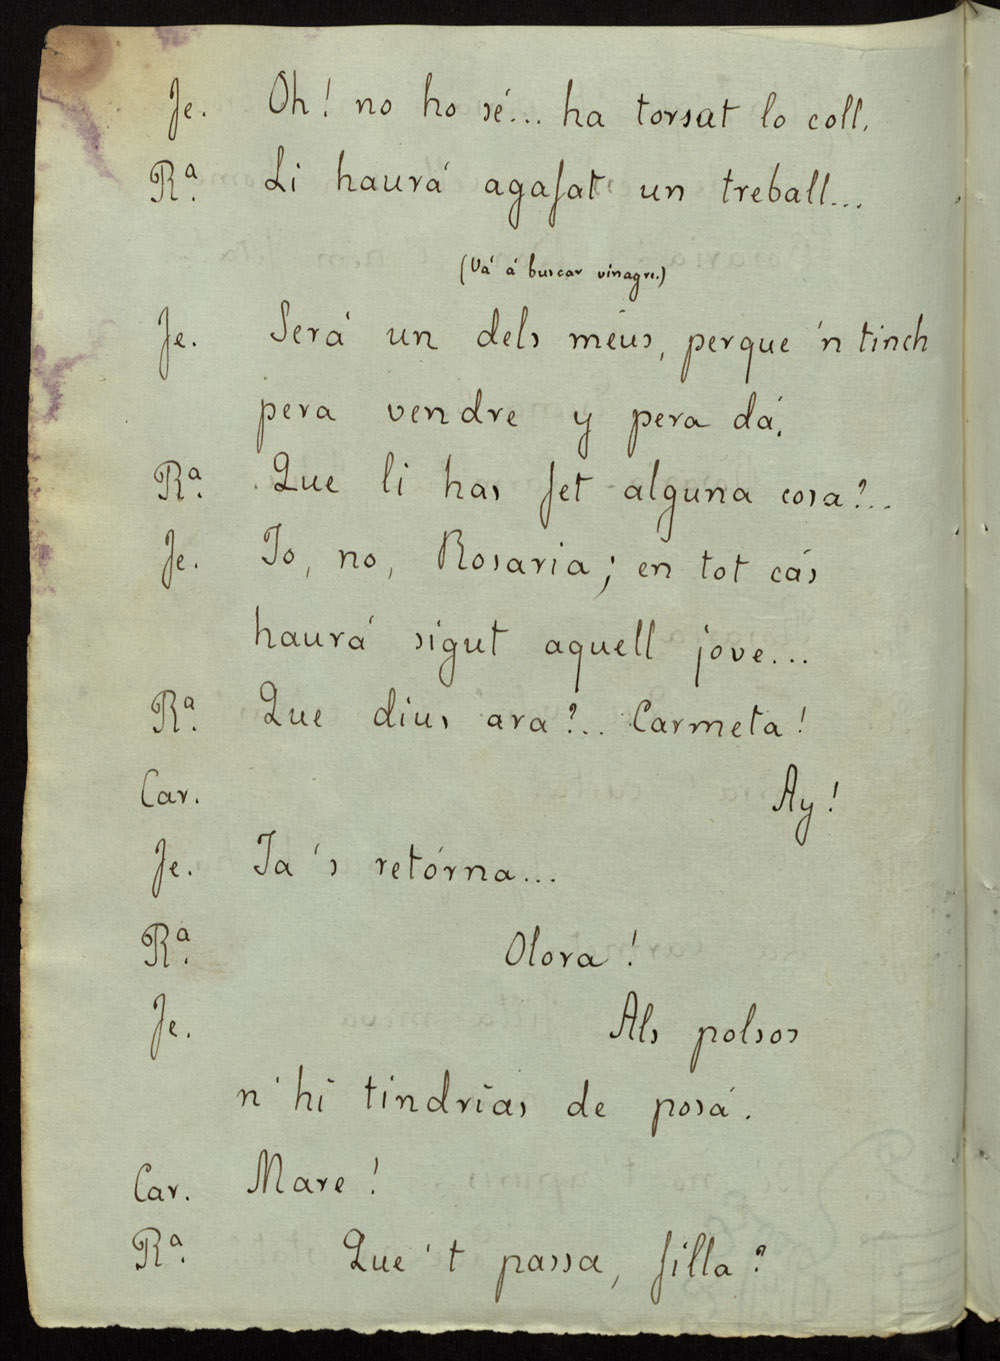 Je. Oh! no ho sé... ha torsat lo coll.
Rª. Li haurá agafat un treball...
(Vá á buscar vinagre.)
Je. Será un dels méus, perque 'n tinch
pera vendre y pera dá.
Rª. Que li has fet alguna cosa?..
Je. Jo, no, Rosaria; en tot cás
haurá sigut aquell jove...
Rª. Que dius ara?.. Carmeta!
Car. Ay!
Je. Ja 's retórna...
Rª. Olora!
Je. Als polsos
n'hi tindrias de posá.
Car. Mare!
Rª. Que 't passa, filla?